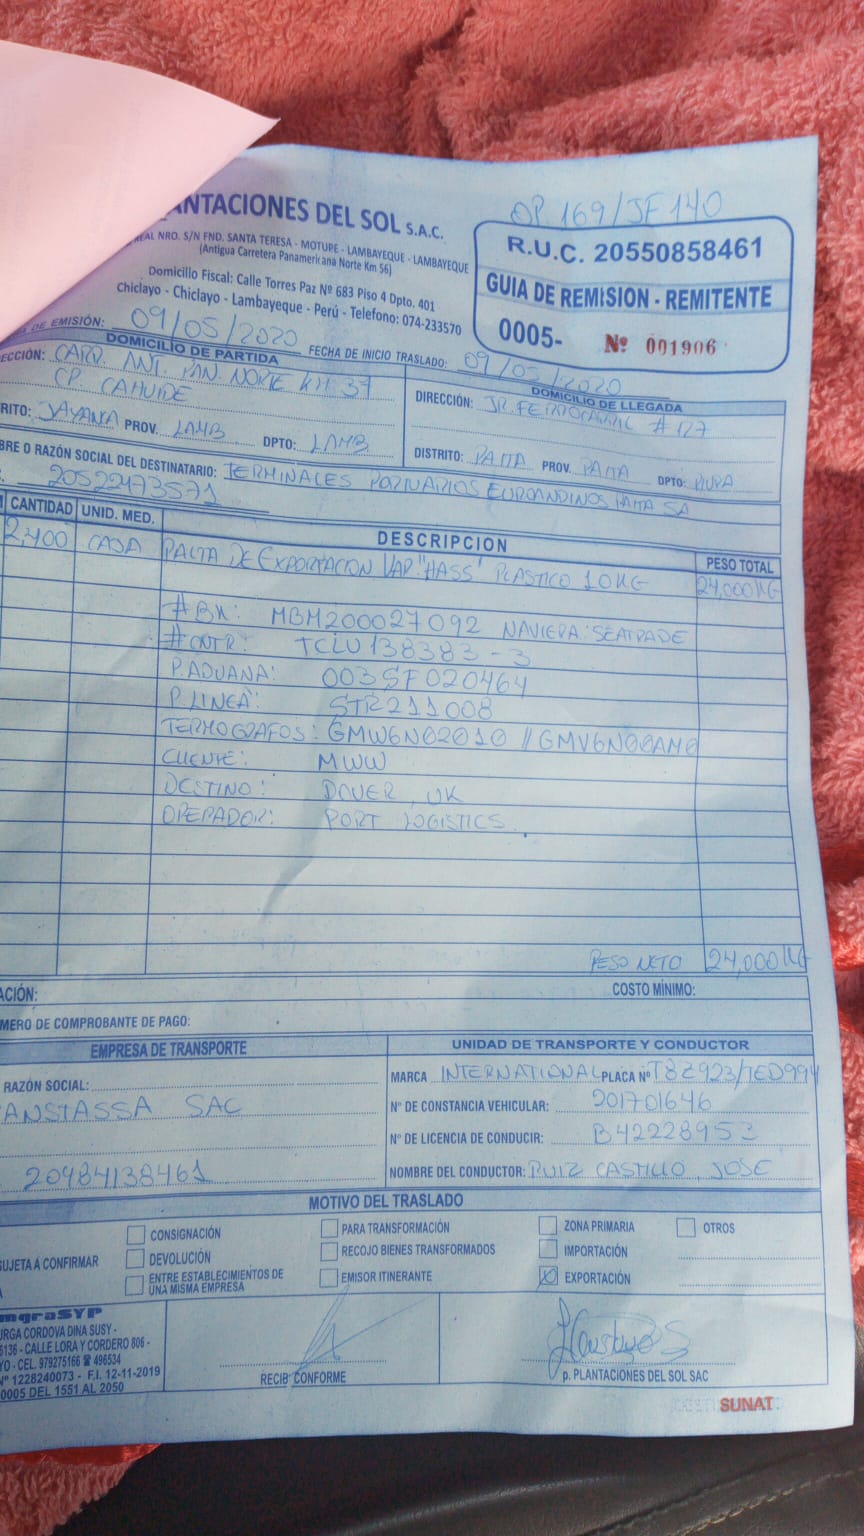 ANTACIONES DEL SOL S.A.C.
REAL NRO. S/N FND. SANTA TERESA - MOTUPE - LAMBAYEQUE - LAMBAYEQUE
(Antigua Carretera Panamericana Norte Km 56)
Domicilio Fiscal: Calle Torres Paz Nº 683 Piso 4 Dpto. 401
Chiclayo - Chiclayo - Lambayeque - Perú - Telefono: 074-233570
OP. 169/JF 140
R.U.C. 20550858461
GUIA DE REMISION - REMITENTE
0005- Nº 001906
DE EMISIÓN: 09/05/2020 FECHA DE INICIO TRASLADO: 09/05/2020
DOMICILIO DE PARTIDA
ECCIÓN: CARR. ANT. PAN. NORTE KM 37
CP. CAHUIDE
RITO: JAYANCA PROV. LAMB DPTO: LAMB
DOMICILIO DE LLEGADA
DIRECCIÓN: JR. FERROCARRIL # 127
DISTRITO: PAITA PROV. PAITA DPTO: PIURA
BRE O RAZÓN SOCIAL DEL DESTINATARIO: TERMINALES PORTUARIOS EUROANDINOS PAITA SA
20522473571
CANTIDAD UNID. MED. DESCRIPCION PESO TOTAL
2,400 CAJA PALTA DE EXPORTACION VAR. "HASS" PLASTICO 10KG 24,000KG
#BK: MBM200027092 NAVIERA: SEATRADE
#CNTR: TCLU 138383-3
P.ADUANA: 003SF020464
P.LINEA: STR211008
TERMOGRAFOS: GMW6N02010 //
CLIENTE: MWW
DESTINO: DOVER, UK
OPERADOR: PORT LOGISTICS.
PESO NETO 24,000KG
ACIÓN: COSTO MÍNIMO:
MERO DE COMPROBANTE DE PAGO:
EMPRESA DE TRANSPORTE
RAZÓN SOCIAL:
ANSTASSA SAC
20484138461
UNIDAD DE TRANSPORTE Y CONDUCTOR
MARCA INTERNATIONAL PLACA Nº T8Z923/TED994
Nº DE CONSTANCIA VEHICULAR: 201701646
Nº DE LICENCIA DE CONDUCIR: B42228953
NOMBRE DEL CONDUCTOR: RUIZ CASTILLO, JOSE
MOTIVO DEL TRASLADO
CONSIGNACIÓN PARA TRANSFORMACIÓN ZONA PRIMARIA OTROS
SUJETA A CONFIRMAR DEVOLUCIÓN RECOJO BIENES TRANSFORMADOS IMPORTACIÓN
ENTRE ESTABLECIMIENTOS DE EMISOR ITINERANTE EXPORTACIÓN
UNA MISMA EMPRESA
mgraSYP
URGA CORDOVA DINA SUSY -
6136 - CALLE LORA Y CORDERO 806 -
YO - CEL. 979275166 ☎ 496534
Nº 1228240073 - F.I. 12-11-2019
0005 DEL 1551 AL 2050
RECIBÍ CONFORME
p. PLANTACIONES DEL SOL SAC
SUNAT